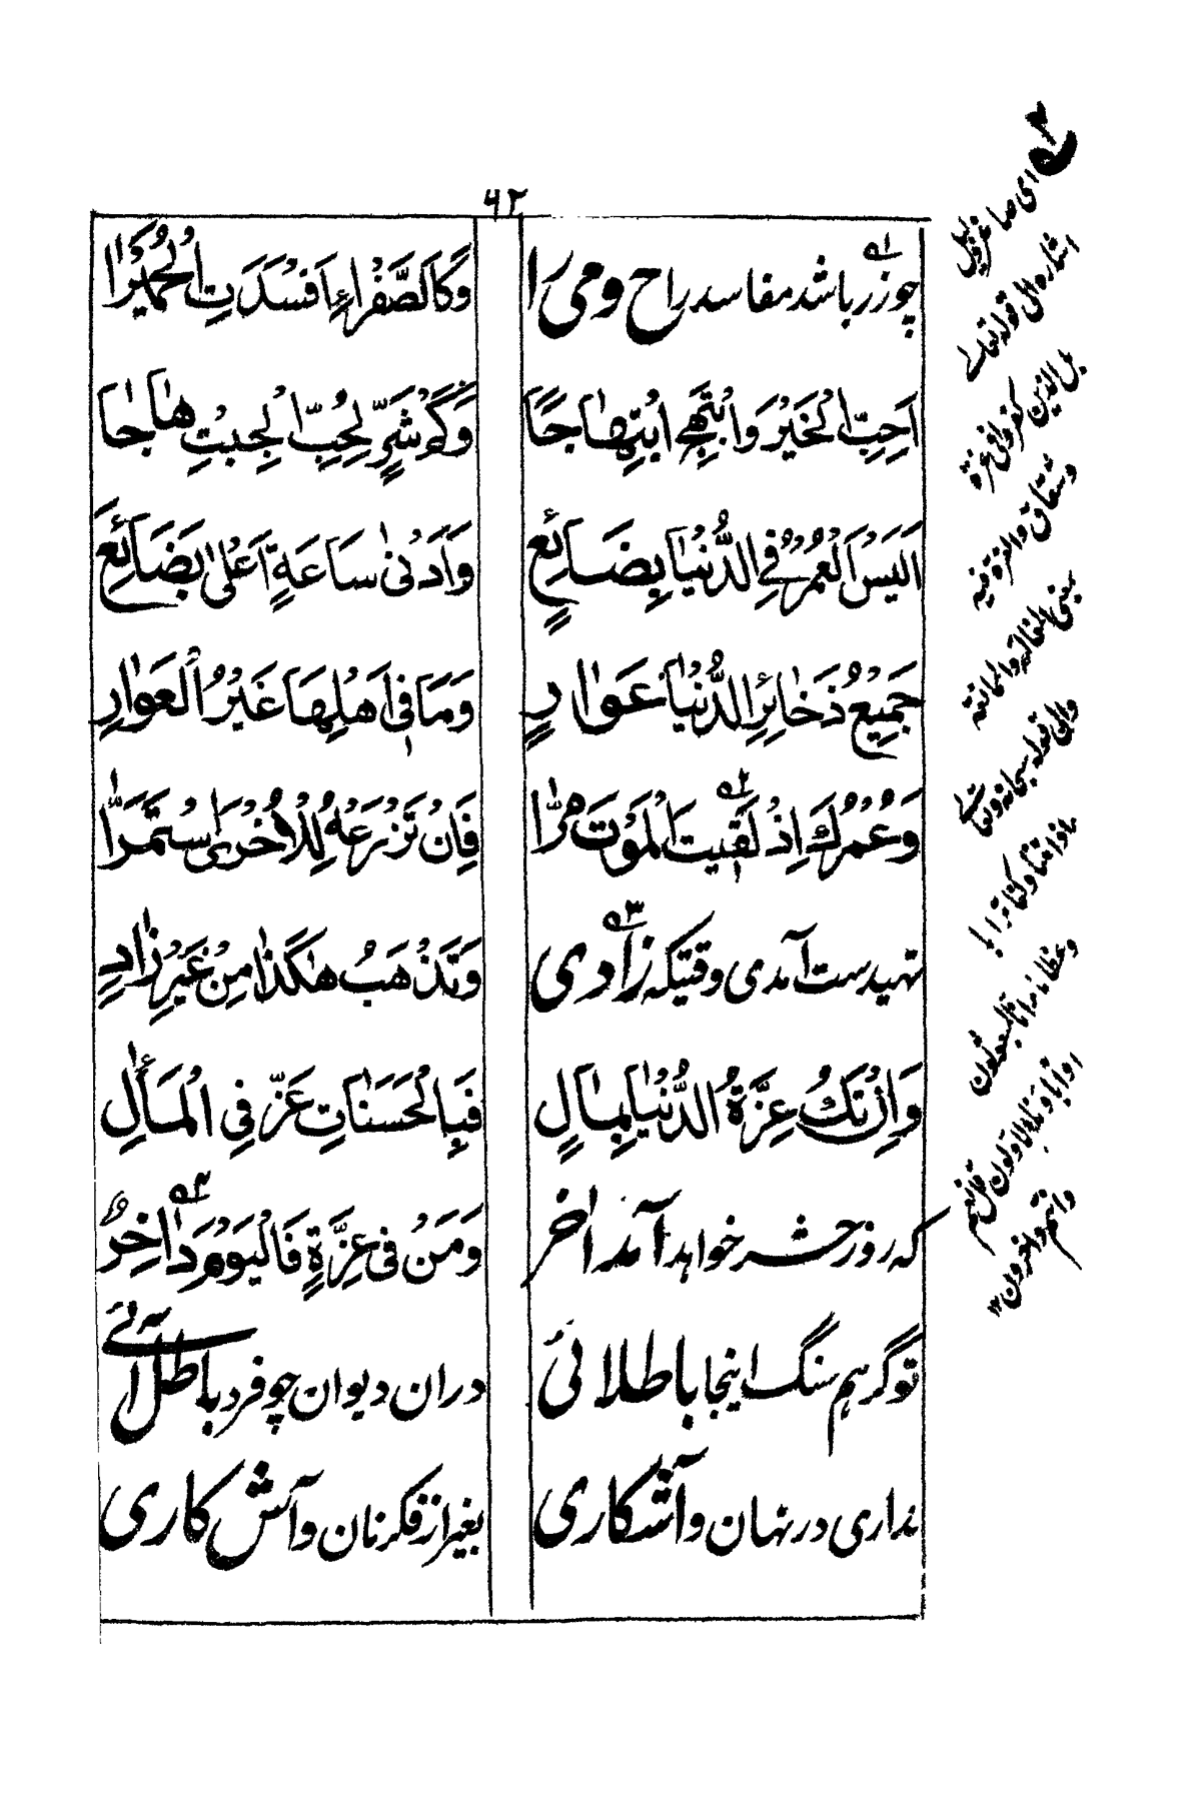 ۴۲
چو زر باشد مفاسد راح و می را
وَكَالصَّفْرَاءِ اَفْسَدَتِ الْحُمَيْرَا
اَحِبَّ الْخَيْرَ وَابْتَهِجِ ابْتِهَاجًا
وَكَمْ شَرٍّ لِحُبِّ الْجِبْتِ هَاجَا
اَلَيْسَ الْعُمْرُ فِي الدُّنْيَا بِضَائِعٍ
وَاَدْنٰى سَاعَةٍ اَعْلٰى بَضَائِعَ
جَمِيْعُ ذَخَائِرِ الدُّنْيَا عَوَارٍ
وَمَا فِى اَهْلِهَا غَيْرُ الْعَوَارِ
وَعُمْرُكَ اِذْ لَقِيتَ الْمَوْتَ مَرَّا
فَاِنْ تَزْرَعْهُ لِلْاُخْرَى اسْتَمَرَّا
تهیدست آمدی وقتیکه زادی
وَتَذْهَبُ هٰكَذَا مِنْ غَيْرِ زَادِ
وَاِنْ تَكُ عِزَّةُ الدُّنْيَا بِمَالٍ
فَبِالْحَسَنَاتِ عَزَّ فِي الْمَآلِ
که روز حشر خواهد آمد آخر
وَمَنْ فِى عِزَّةٍ فَالْيَوْمَ دَاخِرْ
تو گر هم سنگ اینجا با طلائی
دران دیوان چو فرد باطل آئی
نداری در نهان و آشکاری
بغیر از فکر نان و آش کاری
ای صاغر و ذلیل
اشاره الی قوله تعالے
بل الذین کفروا فی عزة
وشقاق والعزة فیه
بمعنی المغالبة والممانعة
والی قوله سبحانه وتعالی
ءاذا متنا وکنا ترابا
وعظاما ءانا لمبعوثون
اوآباؤنا الاولون قل نعم
وانتم داخرون ۱۲